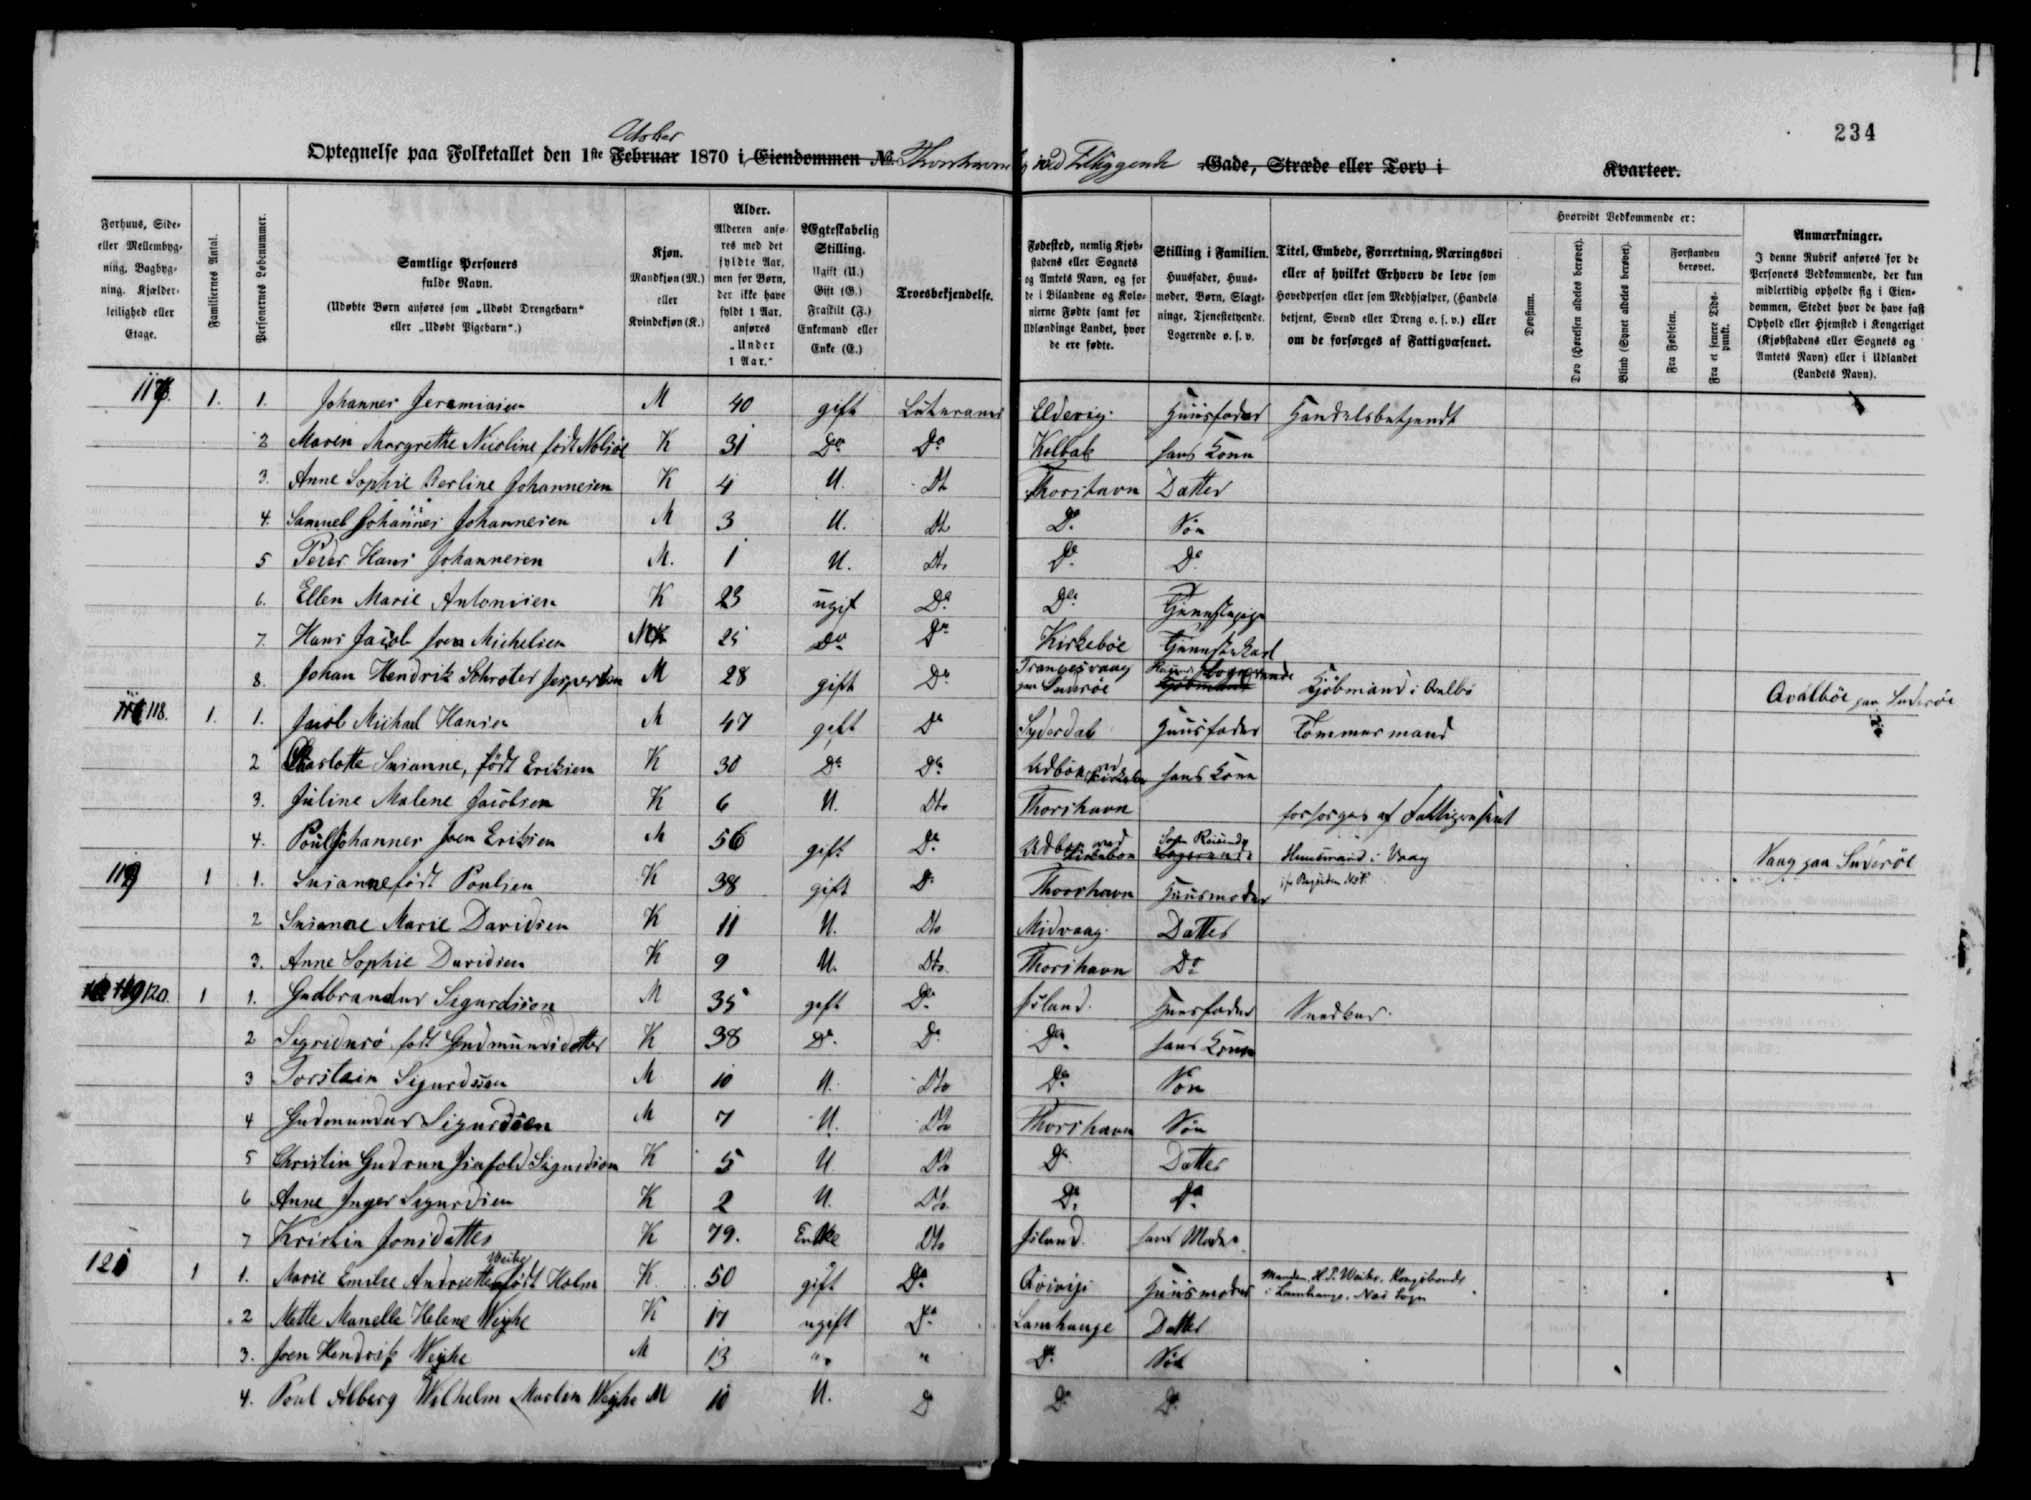 234
Octobr
Optegnelse paa Folketallet den 1ste Februar 1870 i Eiendommen No. Thorshavn ved Tilliggende Gade, Stræde eller Torv i Kvarteer.
Forhuus, Side- eller Mellembyg- ning, Bagbyg- ning. Kjælder- leilighed eller Etage.
Familiernes Antal.
Personernes Løbenummer.
Samtlige Personers fulde Navn.
(Udøbte Børn anføres som „Udøbt Drengebarn“ eller „Udøbt Pigebarn“.)
Kjøn.
Mandkjøn (M.) eller Kvindekjøn (K.)
Alder.
Alderen anfø- res med det fyldte Aar, men for Børn, der ikke have fyldt 1 Aar, anføres „Under 1 Aar.“
Ægteskabelig Stilling.
Ugift (U.) Gift (G.) Fraskilt (F.) Enkemand eller Enke (E.)
Troesbekjendelse.
Fødested, nemlig Kjøb- stadens eller Sognets og Amtets Navn, og for de i Bilandene og Kolo- nierne Fødte samt for Udlændinge Landet, hvor de ere fødte.
Stilling i Familien.
Huusfader, Huus- moder, Børn, Slægt- ninge, Tjenestetyende. Logerende o. s. v.
Titel, Embede, Forretning, Næringsvei eller af hvilket Erhverv de leve som Hovedperson eller som Medhjælper, (Handels betjent, Svend eller Dreng o. s. v.) eller om de forsørges af Fattigvæsenet.
Hvorvidt Vedkommende er:
Døvstum.
Døv (Hørelsen aldeles berøvet).
Blind (Synet aldeles berøvet).
Forstanden berøvet.
Fra Fødselen.
Fra et senere Tids- punkt.
Anmærkninger.
I denne Rubrik anføres for de Personers Vedkommende, der kun midlertidig opholde sig i Eien- dommen, Stedet hvor de have fast Ophold eller Hjemsted i Kongeriget (Kjøbstadens eller Sognets og Amtets Navn) eller i Udlandet (Landets Navn).
117. 1. 1. Johannes Jeremiasen M 40 gift Lutheraner Eldevig Huusfader Handelsbetjendt
2 Maren Margrethe Nicoline født Nolsøe K 31 Do Do Kolbak hans Kone
3. Anne Sophie Berline Johannesen K 4 U. Dto Thorshavn Datter
4. Samuel Johannes Johannesen M 3 U. Dto Do Søn
5 Peder Hans Johannesen M. 1 U. Dto Do Do
6. Ellen Marie Antonisen K 23 ugift Do Do Tjenestepige
7. Hans Jacob Joen Michelsen M 25 Do Do Kirkebøe Tjenestekarl
8. Johan Hendrik Schrøter Jespersen M 28 gift Do Trangesvaag paa Suderøe Logerende Kjøbmand i Qvalbø Qvalbøe paa Suderøe
118. 1. 1. Jacob Michael Hansen M 47 gift Do Syderdal Huusfader Tømmermand
2 Charlotte Susanne, født Eriksen K 30 Do Do Udbøen ved Kirkebø hans Kone
3. Juline Malene Jacobsen K 6 U. Dto Thorshavn forsørges af Fattigvæsenet
4. Poul Johannes Joen Eriksen M 56 gift Do Udbøen ved Kirkebøe Logerende Huusmand i Vaag Vaag paa Suderøe
119 1 1. Susanne født Poulsen K 38 gift Do Thorshavn Huusmoder
2 Susanne Marie Davidsen K 11 U. Dto Midvaag Datter
3. Anne Sophie Davidsen K 9 U. Dto Thorshavn Do
120. 1 1. Gudbrandur Sigurdsson M 35 gift Do Island. Huusfader Snedker
2 Sigridur født Gudmundsdatter K 38 Do Do Do hans Kone
3 Torstein Sigurdsson M 10 U. Dto Do Søn
4 Gudmundur Sigurdsen M 7 U. Dto Thorshavn Søn
5 Christin Gudrun Isafold Sigurdson K 5 U Dto Do Datter
6 Anne Inger Sigurdsen K 2 U. Dto Do Do
7 Kristin Jonsdatter K 79. Enke Dto Island. hans Moder
121 1 1. Marie Emilie Andriette Weihe født Holm K 50 gift Do Qvivig Huusmoder Manden H. P. Weihe, Kongsbonde i Lamhauge, Næs Sogn
2 Mette Manelle Helene Weihe K 17 ugift Do Lamhauge Datter
3. Joen Hendrik Weihe M 13 " " Do Søn
4. Poul Alberg Wilhelm Martin Weihe M 10 U. D Do Do